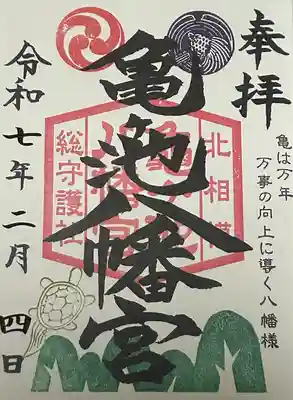 奉拝
亀は万年
万事の向上に導く八幡様
北相模
亀池八幡宮
総守護社
令和七年二月四日